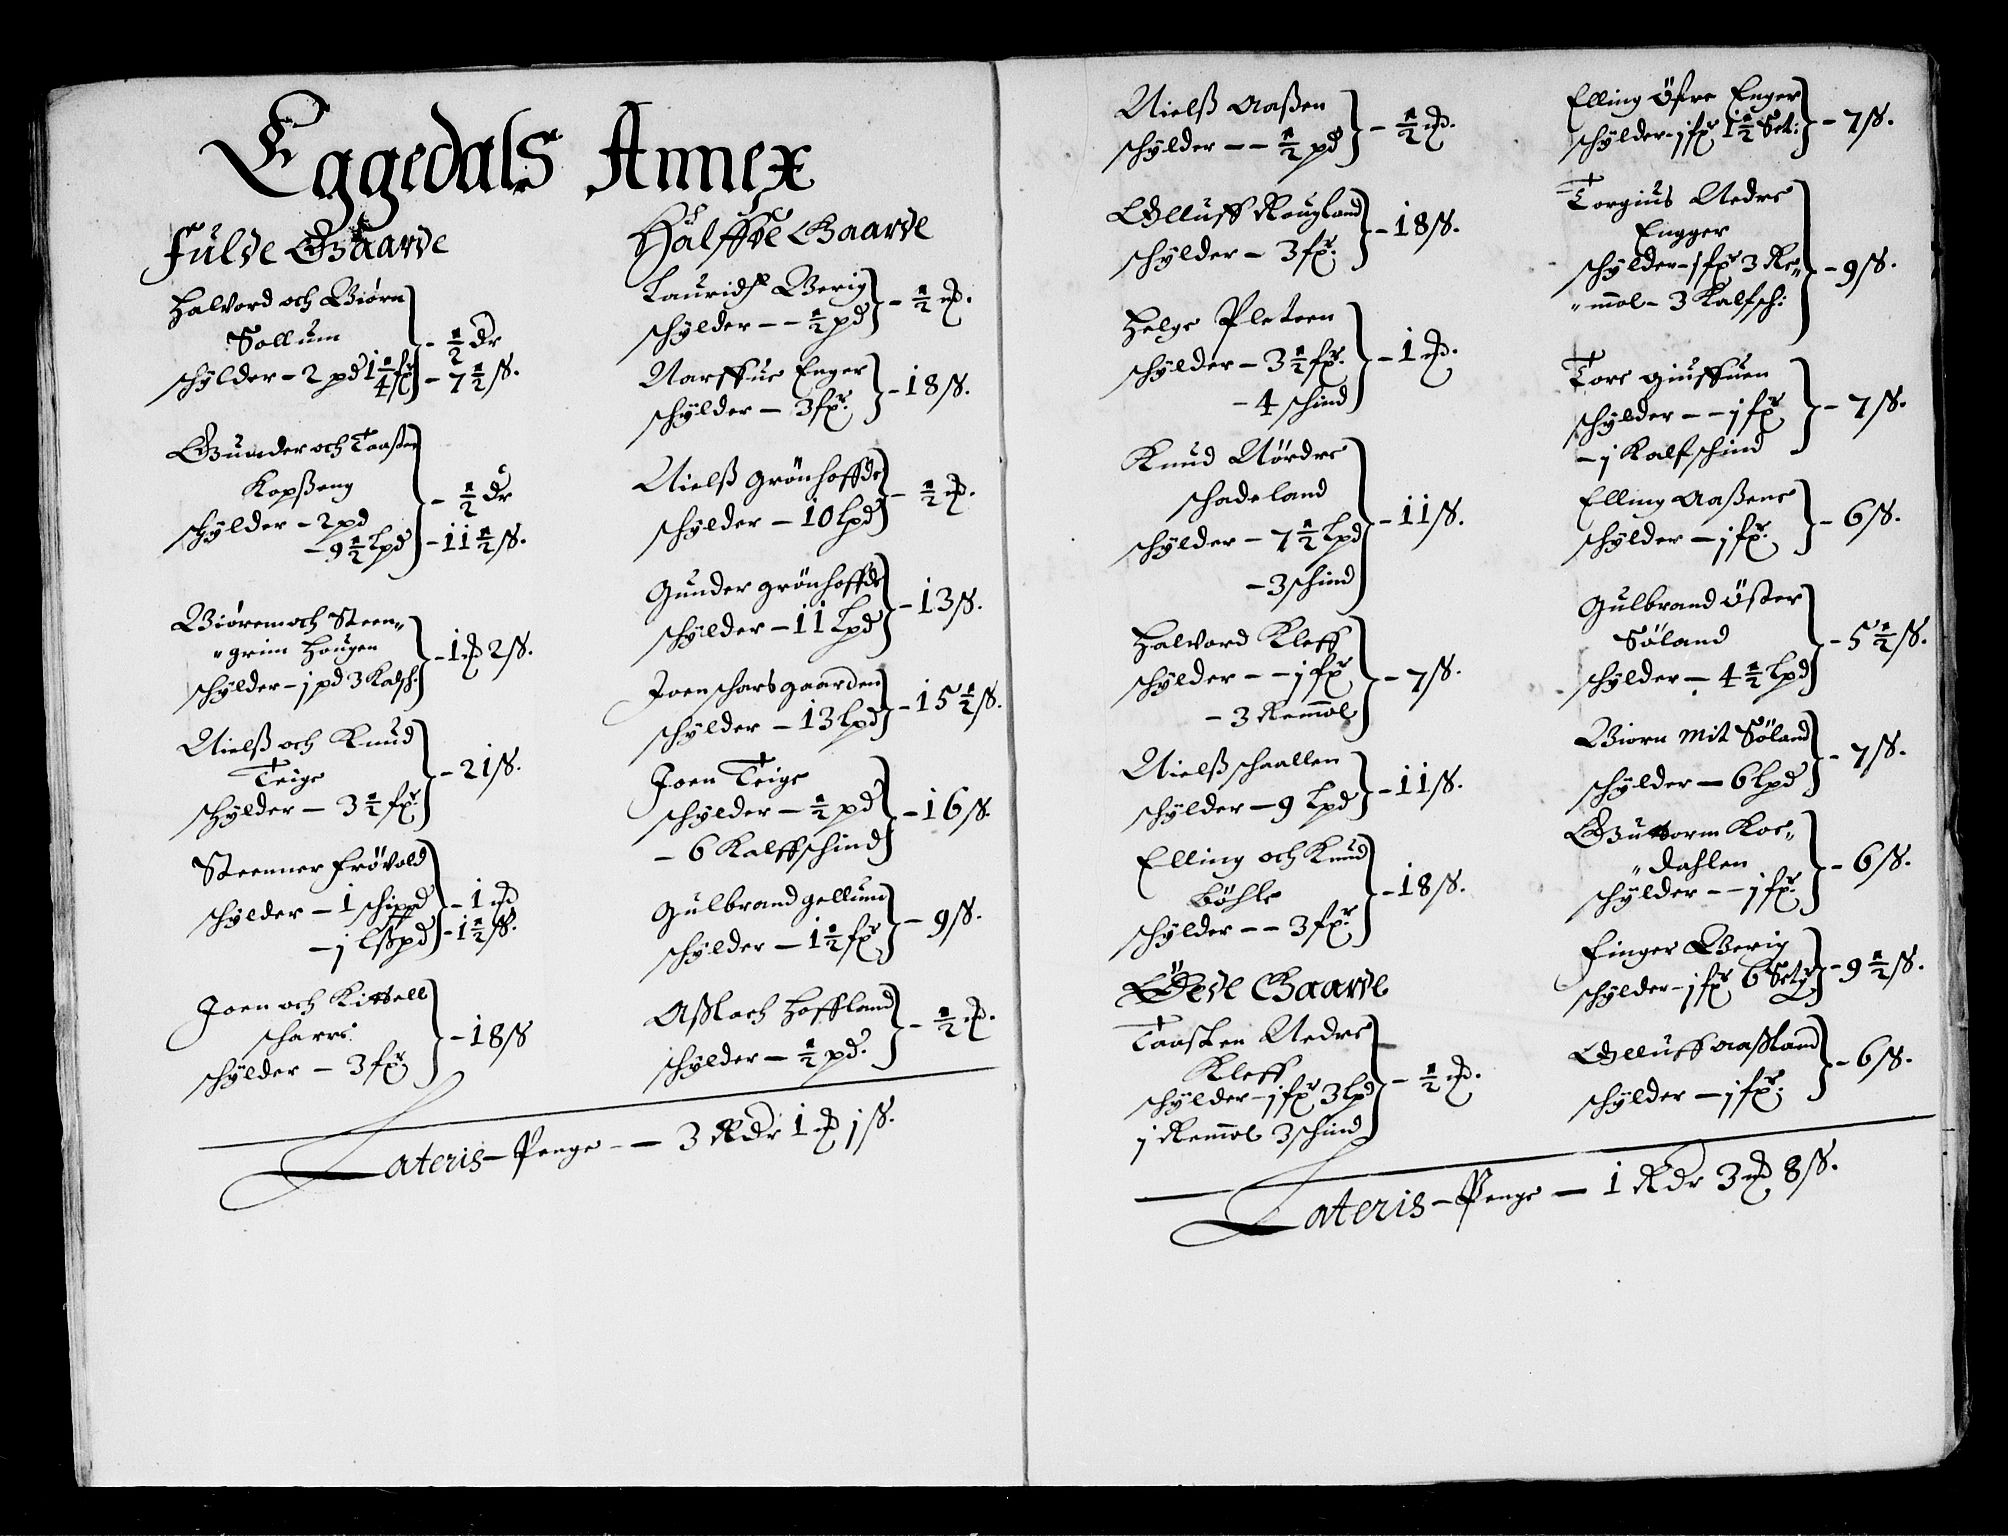 Eggedals Annex
Fulde Gaarde
Halvord och Biørn
Sollum
schylder – 2 pd 1 1/4 fx
– 1/2 dr
– 7 1/2 ß.
Gunder och Taasten
Kopßeng
schylder – 2 pd
– 9 1/2 lpd
– 1/2 dr
– 11 1/2 ß.
Biørem och Steen„
„grim Hougen
schylder – j pd 3 Kalsch:
– 1 ₥ 2 ß.
Nielß och Knud
Teige
schylder – 3 1/2 fx.
– 21 ß.
Steenner Frövold
schylder – 1 schippd
– j lßpd
– 1 ₥
– 1 1/2 ß.
Joen och Kittell
scharre
schylder – 3 fx
– 18 ß
Halffue Gaarde
Lauridtz Berig
schylder – – 1/2 pd
– 1/2 ₥.
Narffue Enger
schylder – 3 fx.
– 18 ß.
Nielß Grönhoffde
schylder – 10 lpd
– 1/2 ₥.
Gunder Grönhoffde
schylder – 11 lpd
– 13 ß.
Joen scharsgaarden
schylder – 13 lpd
– 15 1/2 ß.
Joen Teige
schylder – 1/2 pd
– 6 Kalffschind
– 16 ß.
Gulbrand Gellum
schylder – 1 1/2 fx
– 9 ß.
Aßlach Hoffland
schylder – 1/2 pd.
– 1/2 ₥.
Lateris – Penge – – 3 Rdr 1 ₥ j ß.
Nielß Aaßen
schylder – – 1/2 pd
– 1/2 ₥.
Olluff Rougland
schylder – 3 fx.
– 18 ß.
Helge Pleteen
schylder – 3 1/2 fx.
– 4 schind
– 1 ₥.
Knud Nördre
schadeland
schylder – 7 1/2 lpd
– 3 schind
– 11 ß.
Halvord Kleff
schylder – – j fx
– 3 Remmol
– 7 ß.
Nielß schaallen
schylder – 9 lpd
– 11 ß.
Elling och Knud
Böhle
schylder – – 3 fx.
– 18 ß.
Öde Gaarde
Taasten Nedre
Kleff
schylder – j fx 3 lpd
j Remmol 3 schind
– 1/2 ₥.
Elling Öfre Enger
schylder – j fx 1 1/2 Set:
– 7 ß.
Torgius Nedre
Engger
schylder – j fx 3 Re„
„mmol – 3 Kalfsch:
– 9 ß.
Tore Giuffuen
schylder – – j fx
– j Kalfschind
– 7 ß.
Elling Aaßene
schylder – j fx.
– 6 ß.
Gulbrand Öster
Söland
schylder – 4 1/2 lpd
– 5 1/2 ß.
Biorn Mit Söland
schylder – 6 lpd
– 7 ß.
Guttorm Koe„
„dahlen
schylder – – j fx.
– 6 ß.
Finger Berig
schylder – j fx 6 Set
– 9 1/2 ß.
Olluff Aaßland
schylder – j fx.
– 6 ß.
Lateris – Penge – 1 Rdr 3 ₥ 8 ß.